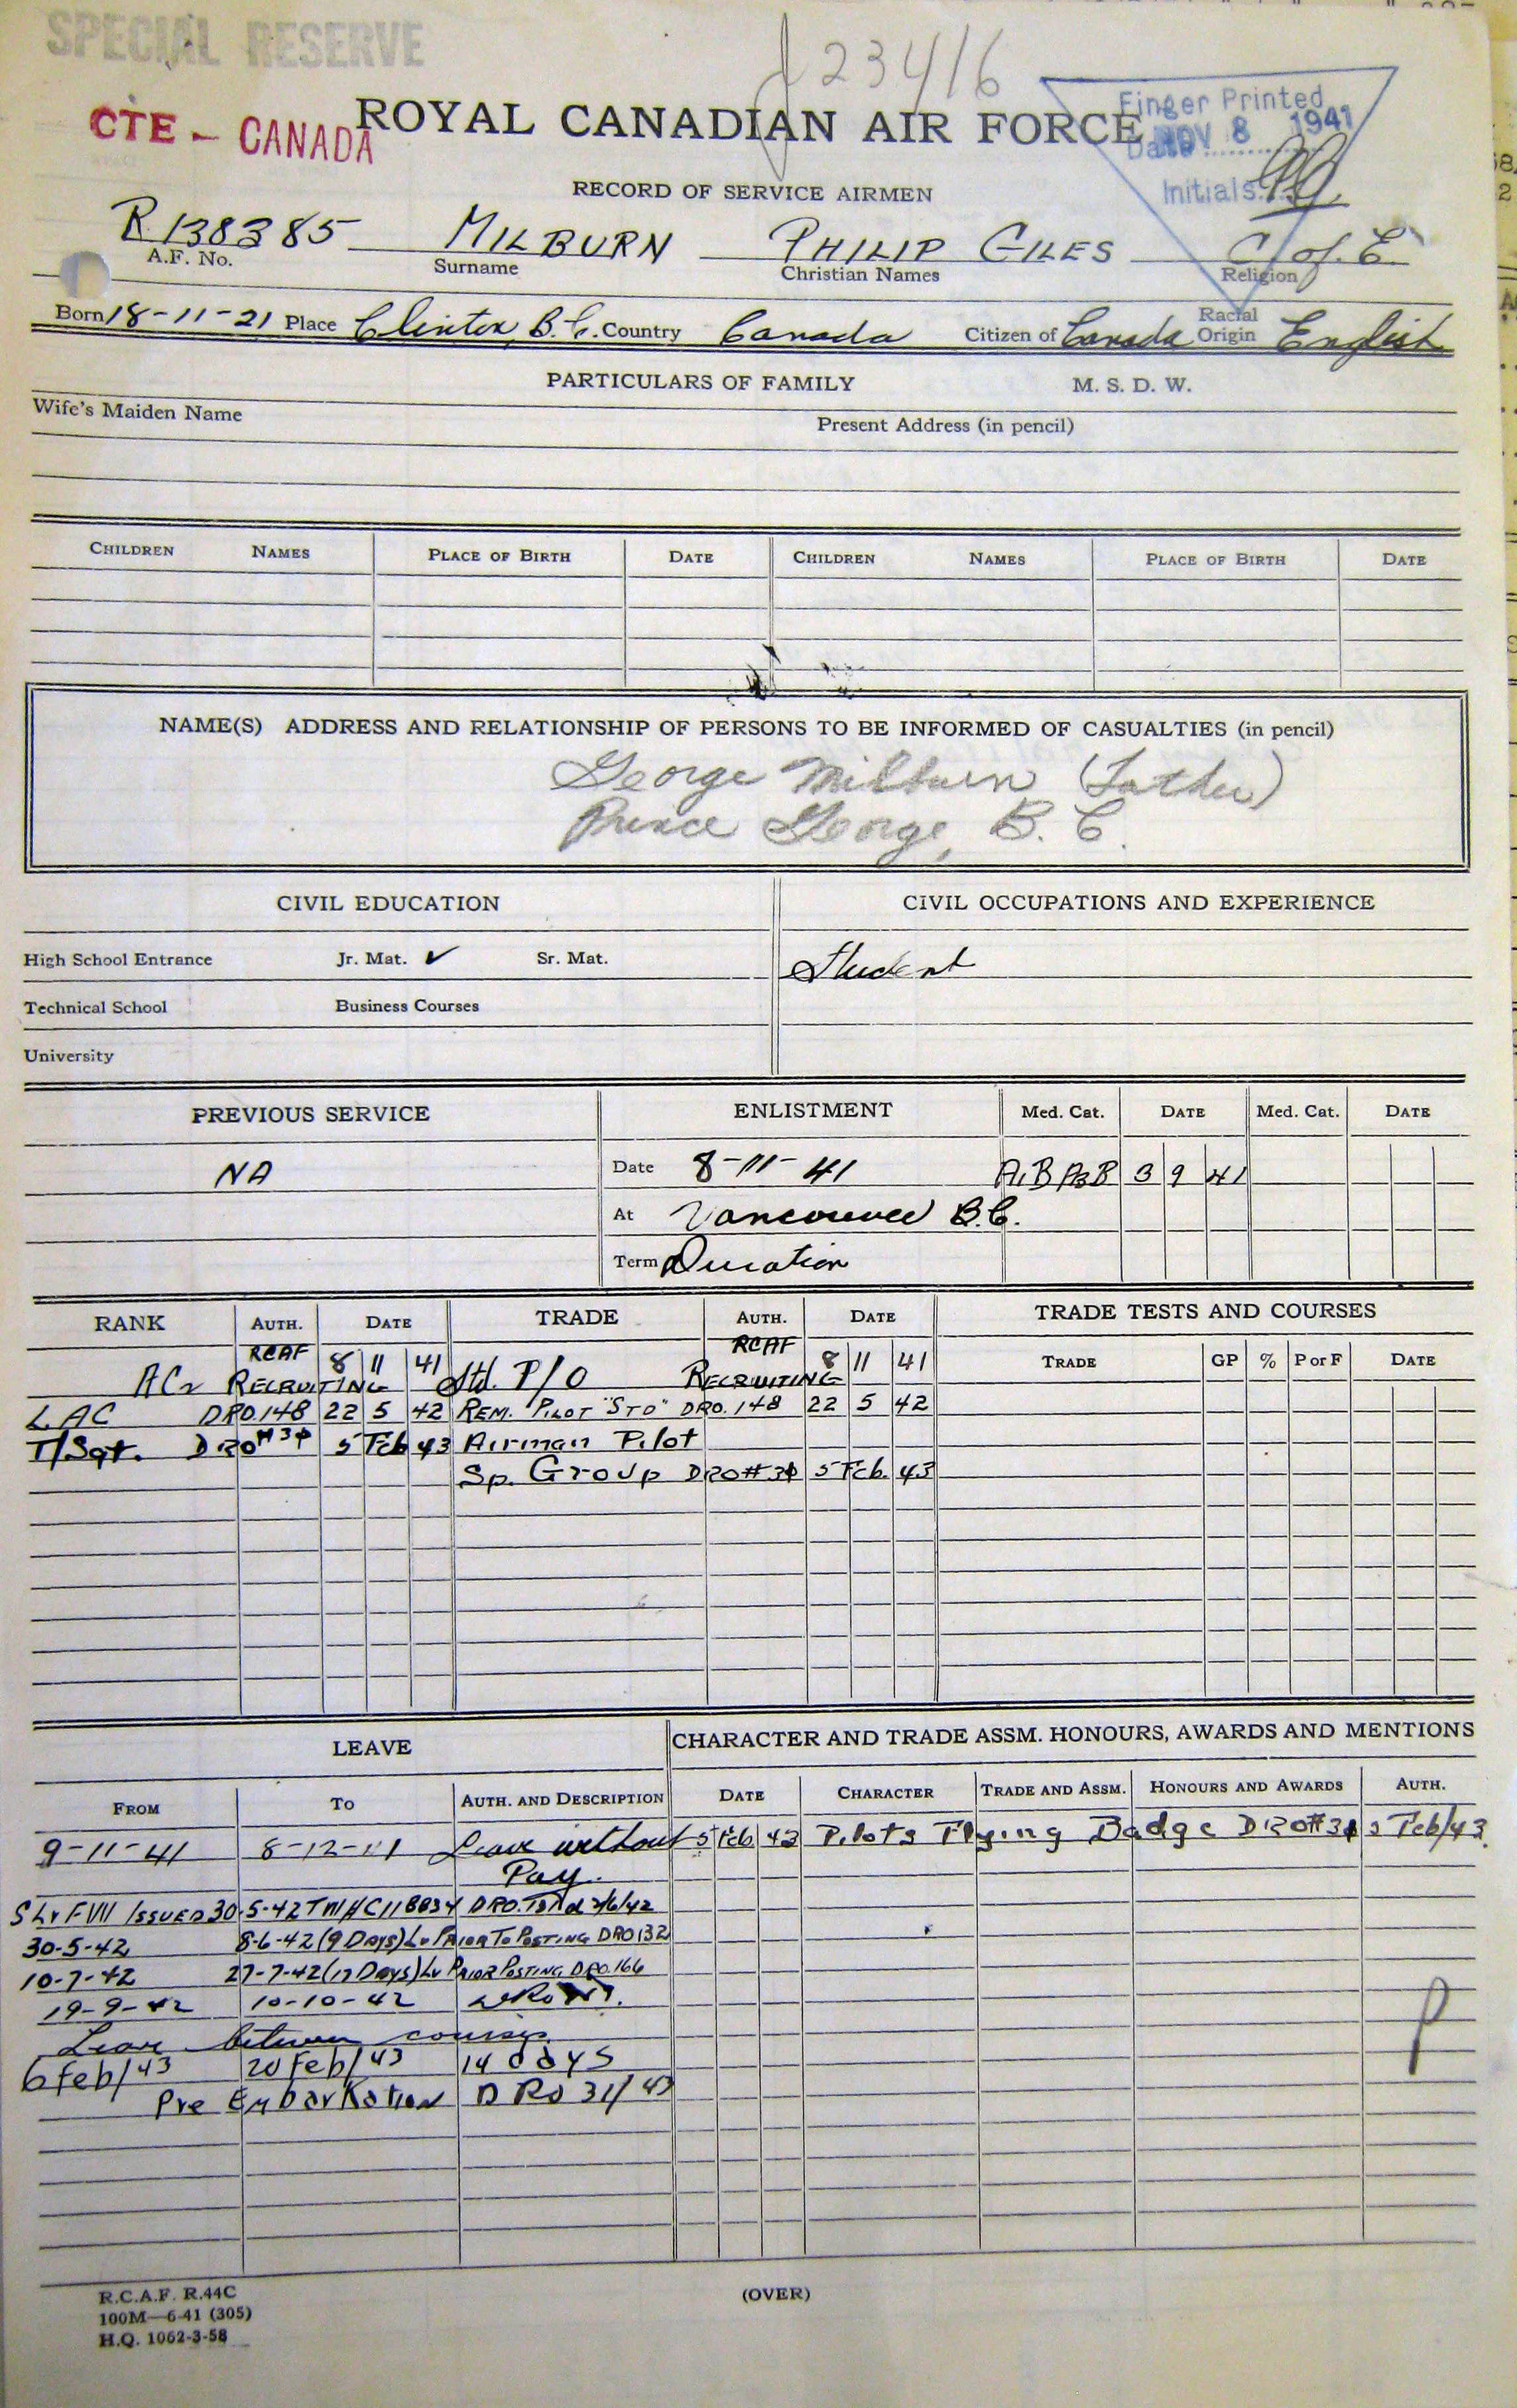 SPECIAL RESERVE
J23416
CTE - CANADA
ROYAL CANADIAN AIR FORCE
Finger Printed
Date NOV 8 1941
Initials
RECORD OF SERVICE AIRMEN
R138385 MILBURN PHILIP GILES C of E
A.F. No. Surname Christian Names Religion
Born 18-11-21 Place Clinton, B.C. Country Canada Citizen of Canada Racial Origin English
PARTICULARS OF FAMILY M. S. D. W.
Wife's Maiden Name Present Address (in pencil)
CHILDREN NAMES PLACE OF BIRTH DATE CHILDREN NAMES PLACE OF BIRTH DATE
NAME(S) ADDRESS AND RELATIONSHIP OF PERSONS TO BE INFORMED OF CASUALTIES (in pencil)
George Milburn (Father)
Prince George, B.C.
CIVIL EDUCATION CIVIL OCCUPATIONS AND EXPERIENCE
High School Entrance Jr. Mat. ✓ Sr. Mat. Student
Technical School Business Courses
University
PREVIOUS SERVICE ENLISTMENT Med. Cat. DATE Med. Cat. DATE
NA Date 8-11-41 A1B A3B 3 9 41
At Vancouver B.C.
Term Duration
RANK AUTH. DATE TRADE AUTH. DATE TRADE TESTS AND COURSES
TRADE GP % P or F DATE
AC2 RCAF RECRUITING 8 11 41 Std. P/O RCAF RECRUITING 8 11 41
LAC DRO.148 22 5 42 REM. PILOT "STD" DRO.148 22 5 42
T/Sgt. DRO#30 5 Feb 43 Airman Pilot
Sp. Group DRO#30 5 Feb. 43
LEAVE CHARACTER AND TRADE ASSM. HONOURS, AWARDS AND MENTIONS
FROM TO AUTH. AND DESCRIPTION DATE CHARACTER TRADE AND ASSM. HONOURS AND AWARDS AUTH.
9-11-41 8-12-41 Leave without 5 Feb 43 Pilots Flying Badge DRO#30 5 Feb/43.
Pay.
ISSUED 30-5-42 DRO. 2/6/42
30-5-42 8-6-42 (9 DAYS) Lv PRIOR TO POSTING DRO 132
10-7-42 27-7-42 (17 DAYS) Lv PRIOR POSTING DRO.166
19-9-42 10-10-42
Leave between courses
6 Feb/43 20 Feb/43 14 days
Pre Embarkation DRO 31/43
P
R.C.A.F. R.44C
100M—6-41 (305)
H.Q. 1062-3-58
(OVER)